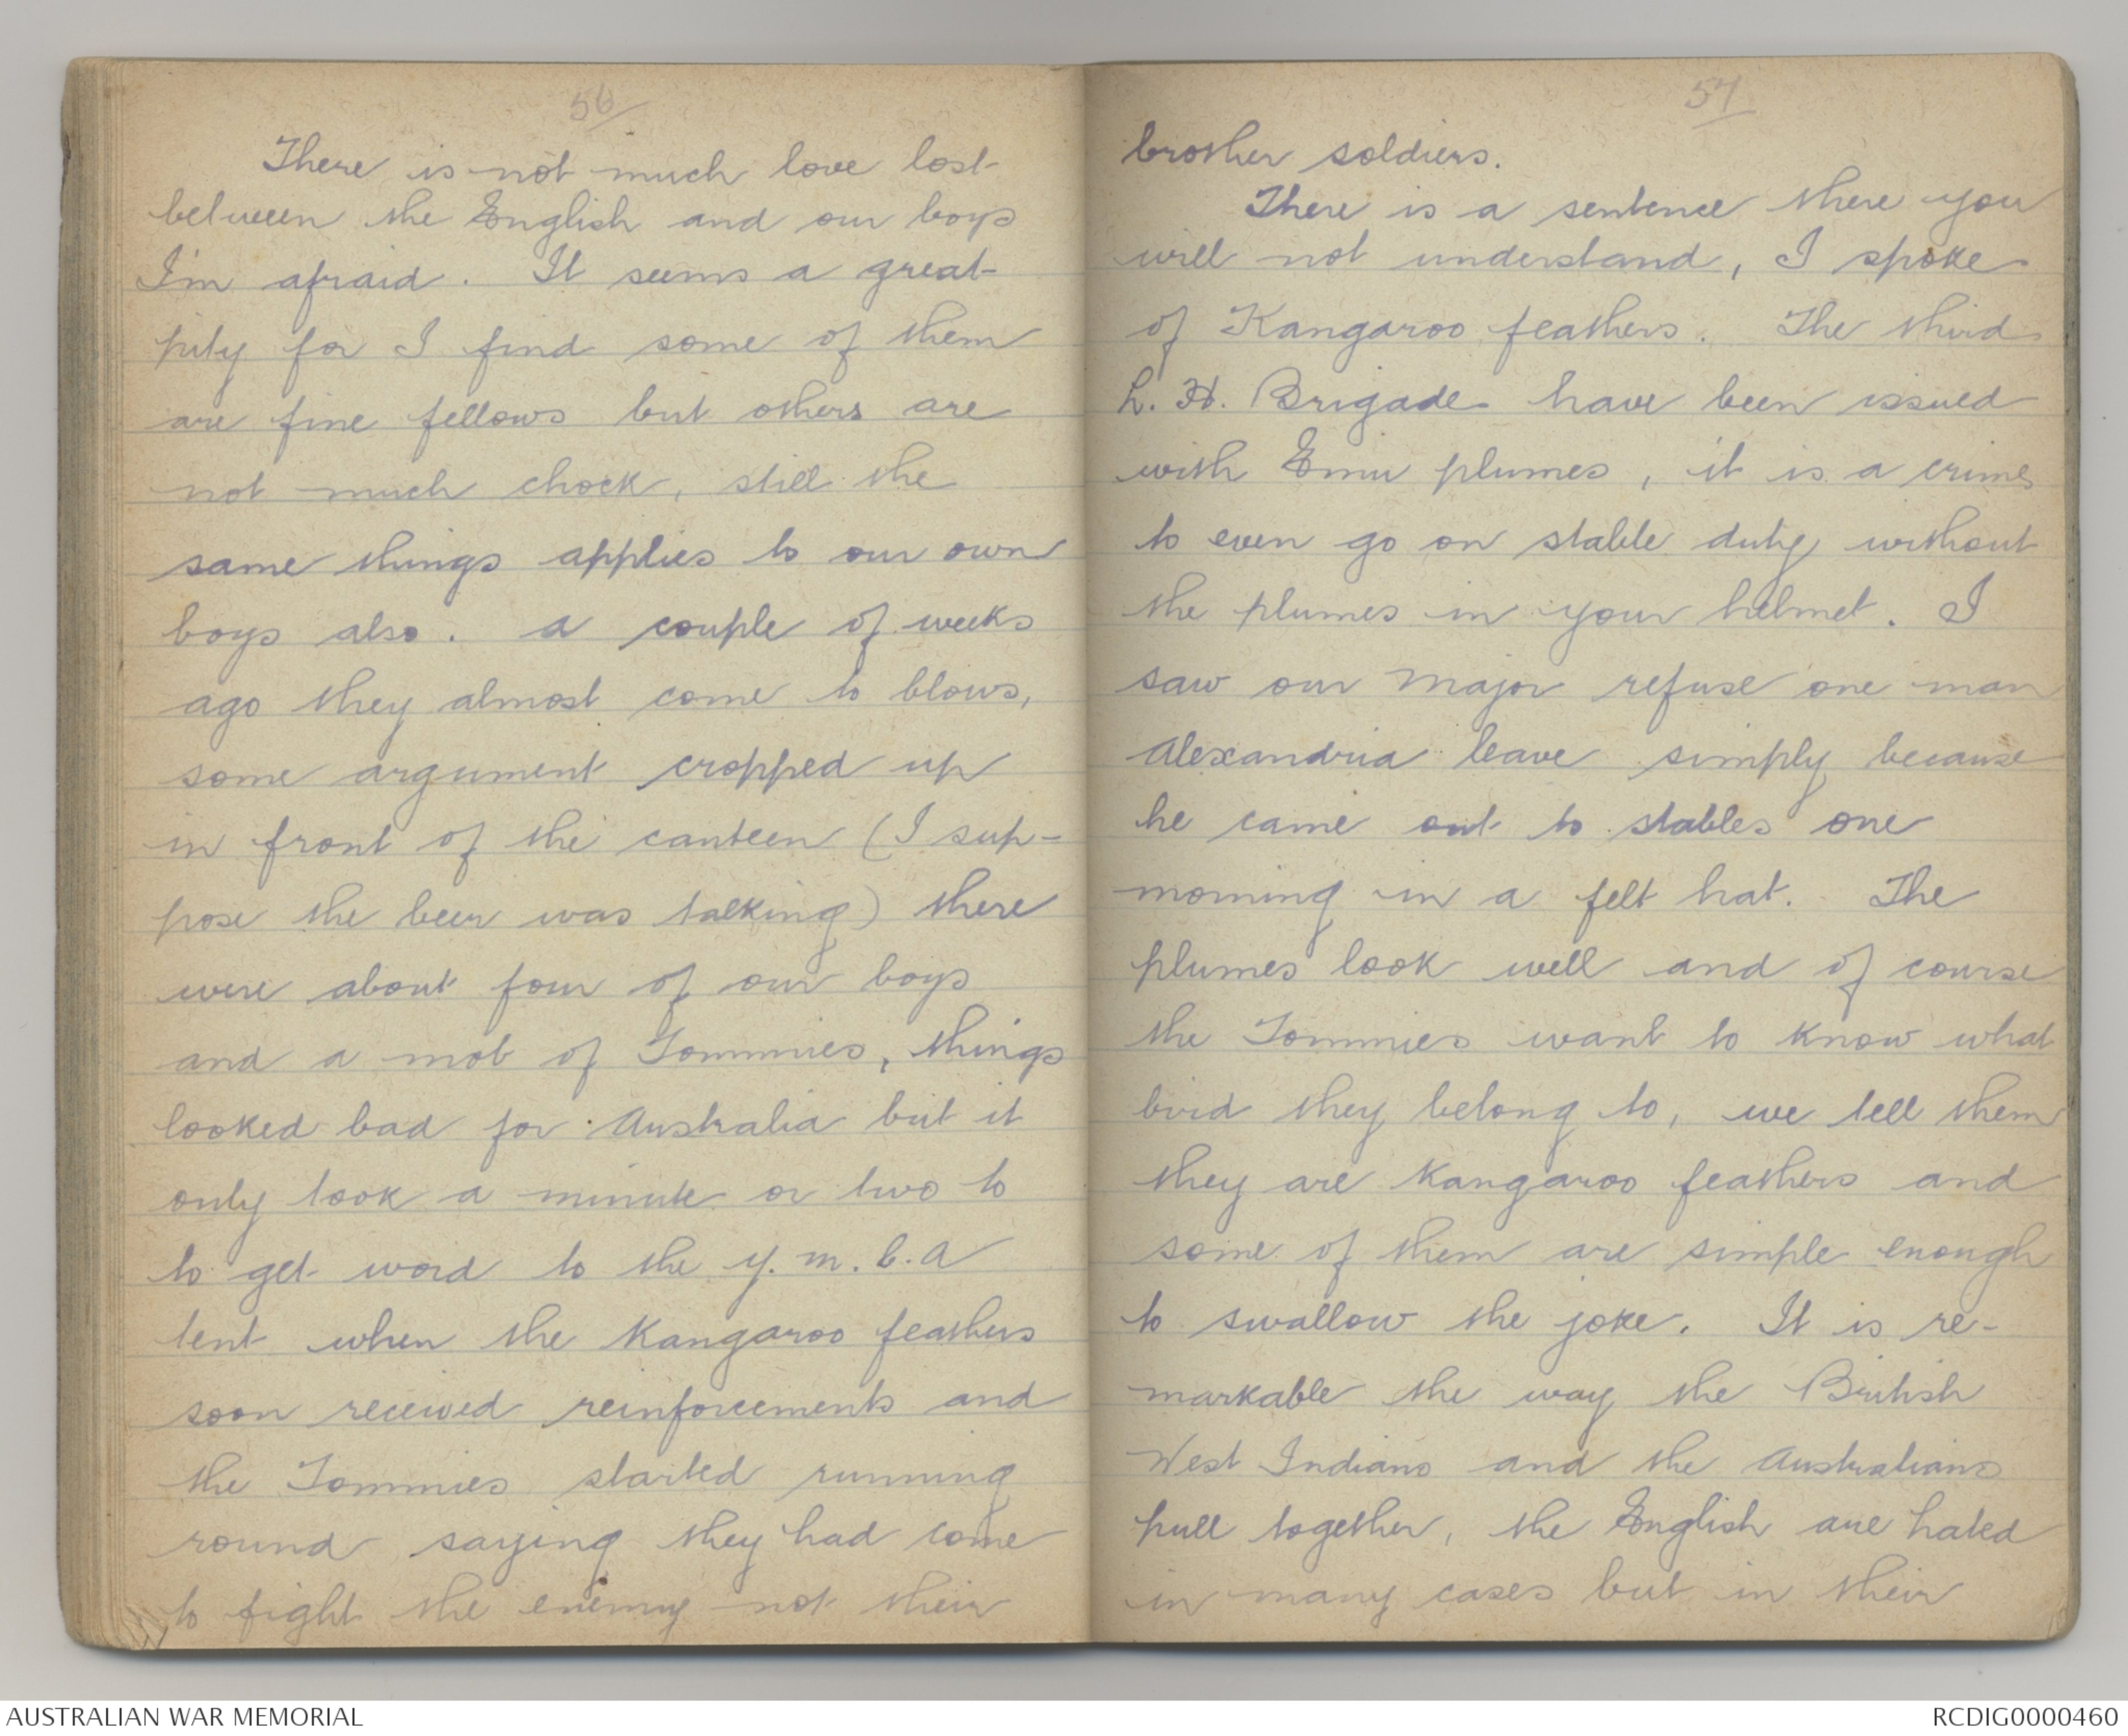 56
There is not much love lost
between the English and our boys
I'm afraid. It seems a great
pity for I find some of them
are fine fellows but others are
not much chock, still the
same things applies to our own
boys also. A couple of weeks
ago they almost come to blows,
some argument cropped up
in front of the canteen (I sup-
pose the beer was talking) there
were about four of our boys
and a mob of Tommies, things
looked bad for Australia but it
only took a minute or two to
to get word to the Y.M.C.A
tent when the Kangaroo feathers
soon received reinforcements and
the Tommies started running
round saying they had come
to fight the enemy not their
57
brother soldiers.
There is a sentence there you
will not understand, I spoke
of Kangaroo feathers. The third
L.H. Brigade have been issued
with Emu plumes, it is a crime
to even go on stable duty without
the plumes in your helmet. I
saw our Major refuse one man
Alexandria leave simply because
he came out to stables one
morning in a felt hat. The
plumes look well and of course
the Tommies want to know what
bird they belong to, we tell them
they are Kangaroo feathers and
some of them are simple enough
to swallow the joke. It is re-
markable the way the British
West Indians and the Australians
pull together, the English are hated
in many cases but in their
AUSTRALIAN WAR MEMORIAL
RCDIG0000460